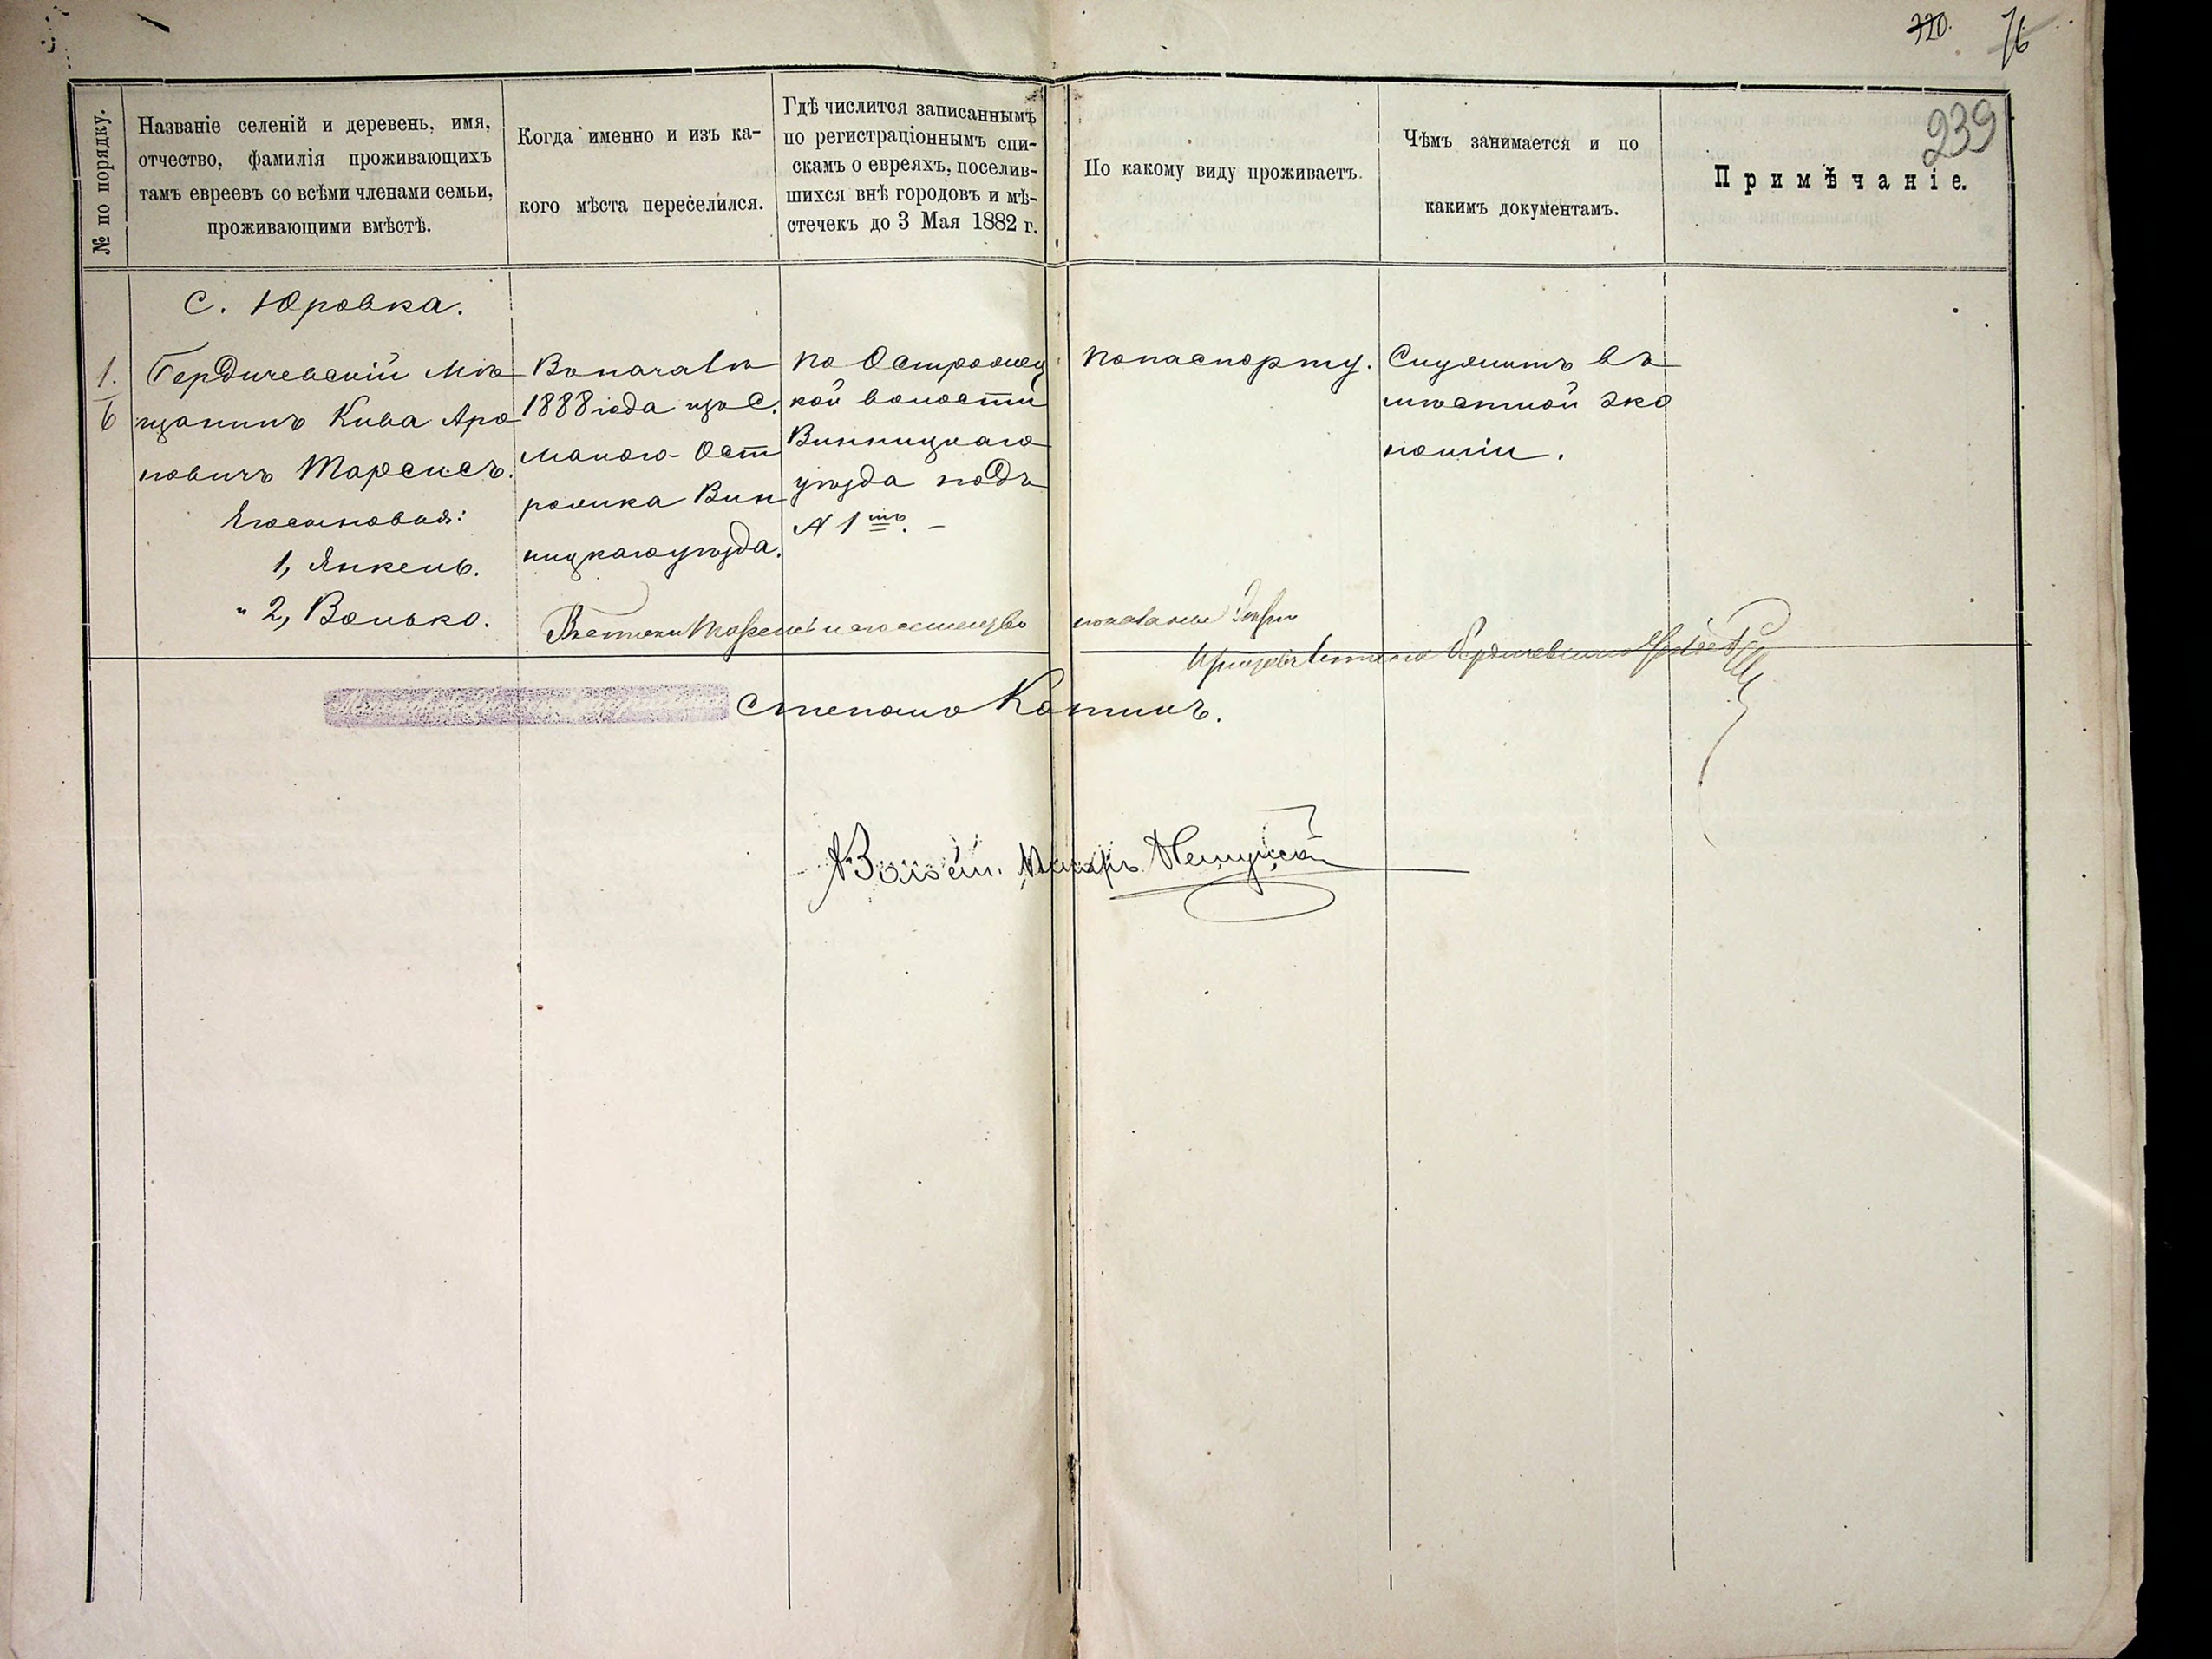 320. 76
239
№ по порядку.
Названіе селеній и деревень, имя,
отчество, фамилія проживающихъ
тамъ евреевъ со всѣми членами семьи,
проживающими вмѣстѣ.
Когда именно и изъ ка-
кого мѣста переселился.
Гдѣ числится записаннымъ
по регистраціоннымъ спи-
скамъ о евреяхъ, поселив-
шихся внѣ городовъ и мѣ-
стечекъ до 3 Мая 1882 г.
По какому виду проживаетъ.
Чѣмъ занимается и по
какимъ документамъ.
Примѣчаніе.
С. Юровка.
1.
6
Бердичевскій Мѣ
щанинъ Кива Аро
новичъ Тарсисъ.
Его сыновья:
1, Янкель.
" 2, Волько.
Вначалѣ
1888 года изъ С.
Малого Ост
рожка Вин
ницкаго уѣзда.
По Острожец
кой волости
Винницкаго
уѣзда подъ
№ 1мъ. –
По паспорту.
Служитъ въ
мѣстной эко
номіи.
Тарсисъ и его семейство
Степанъ Котикъ.
Волост. Писарь